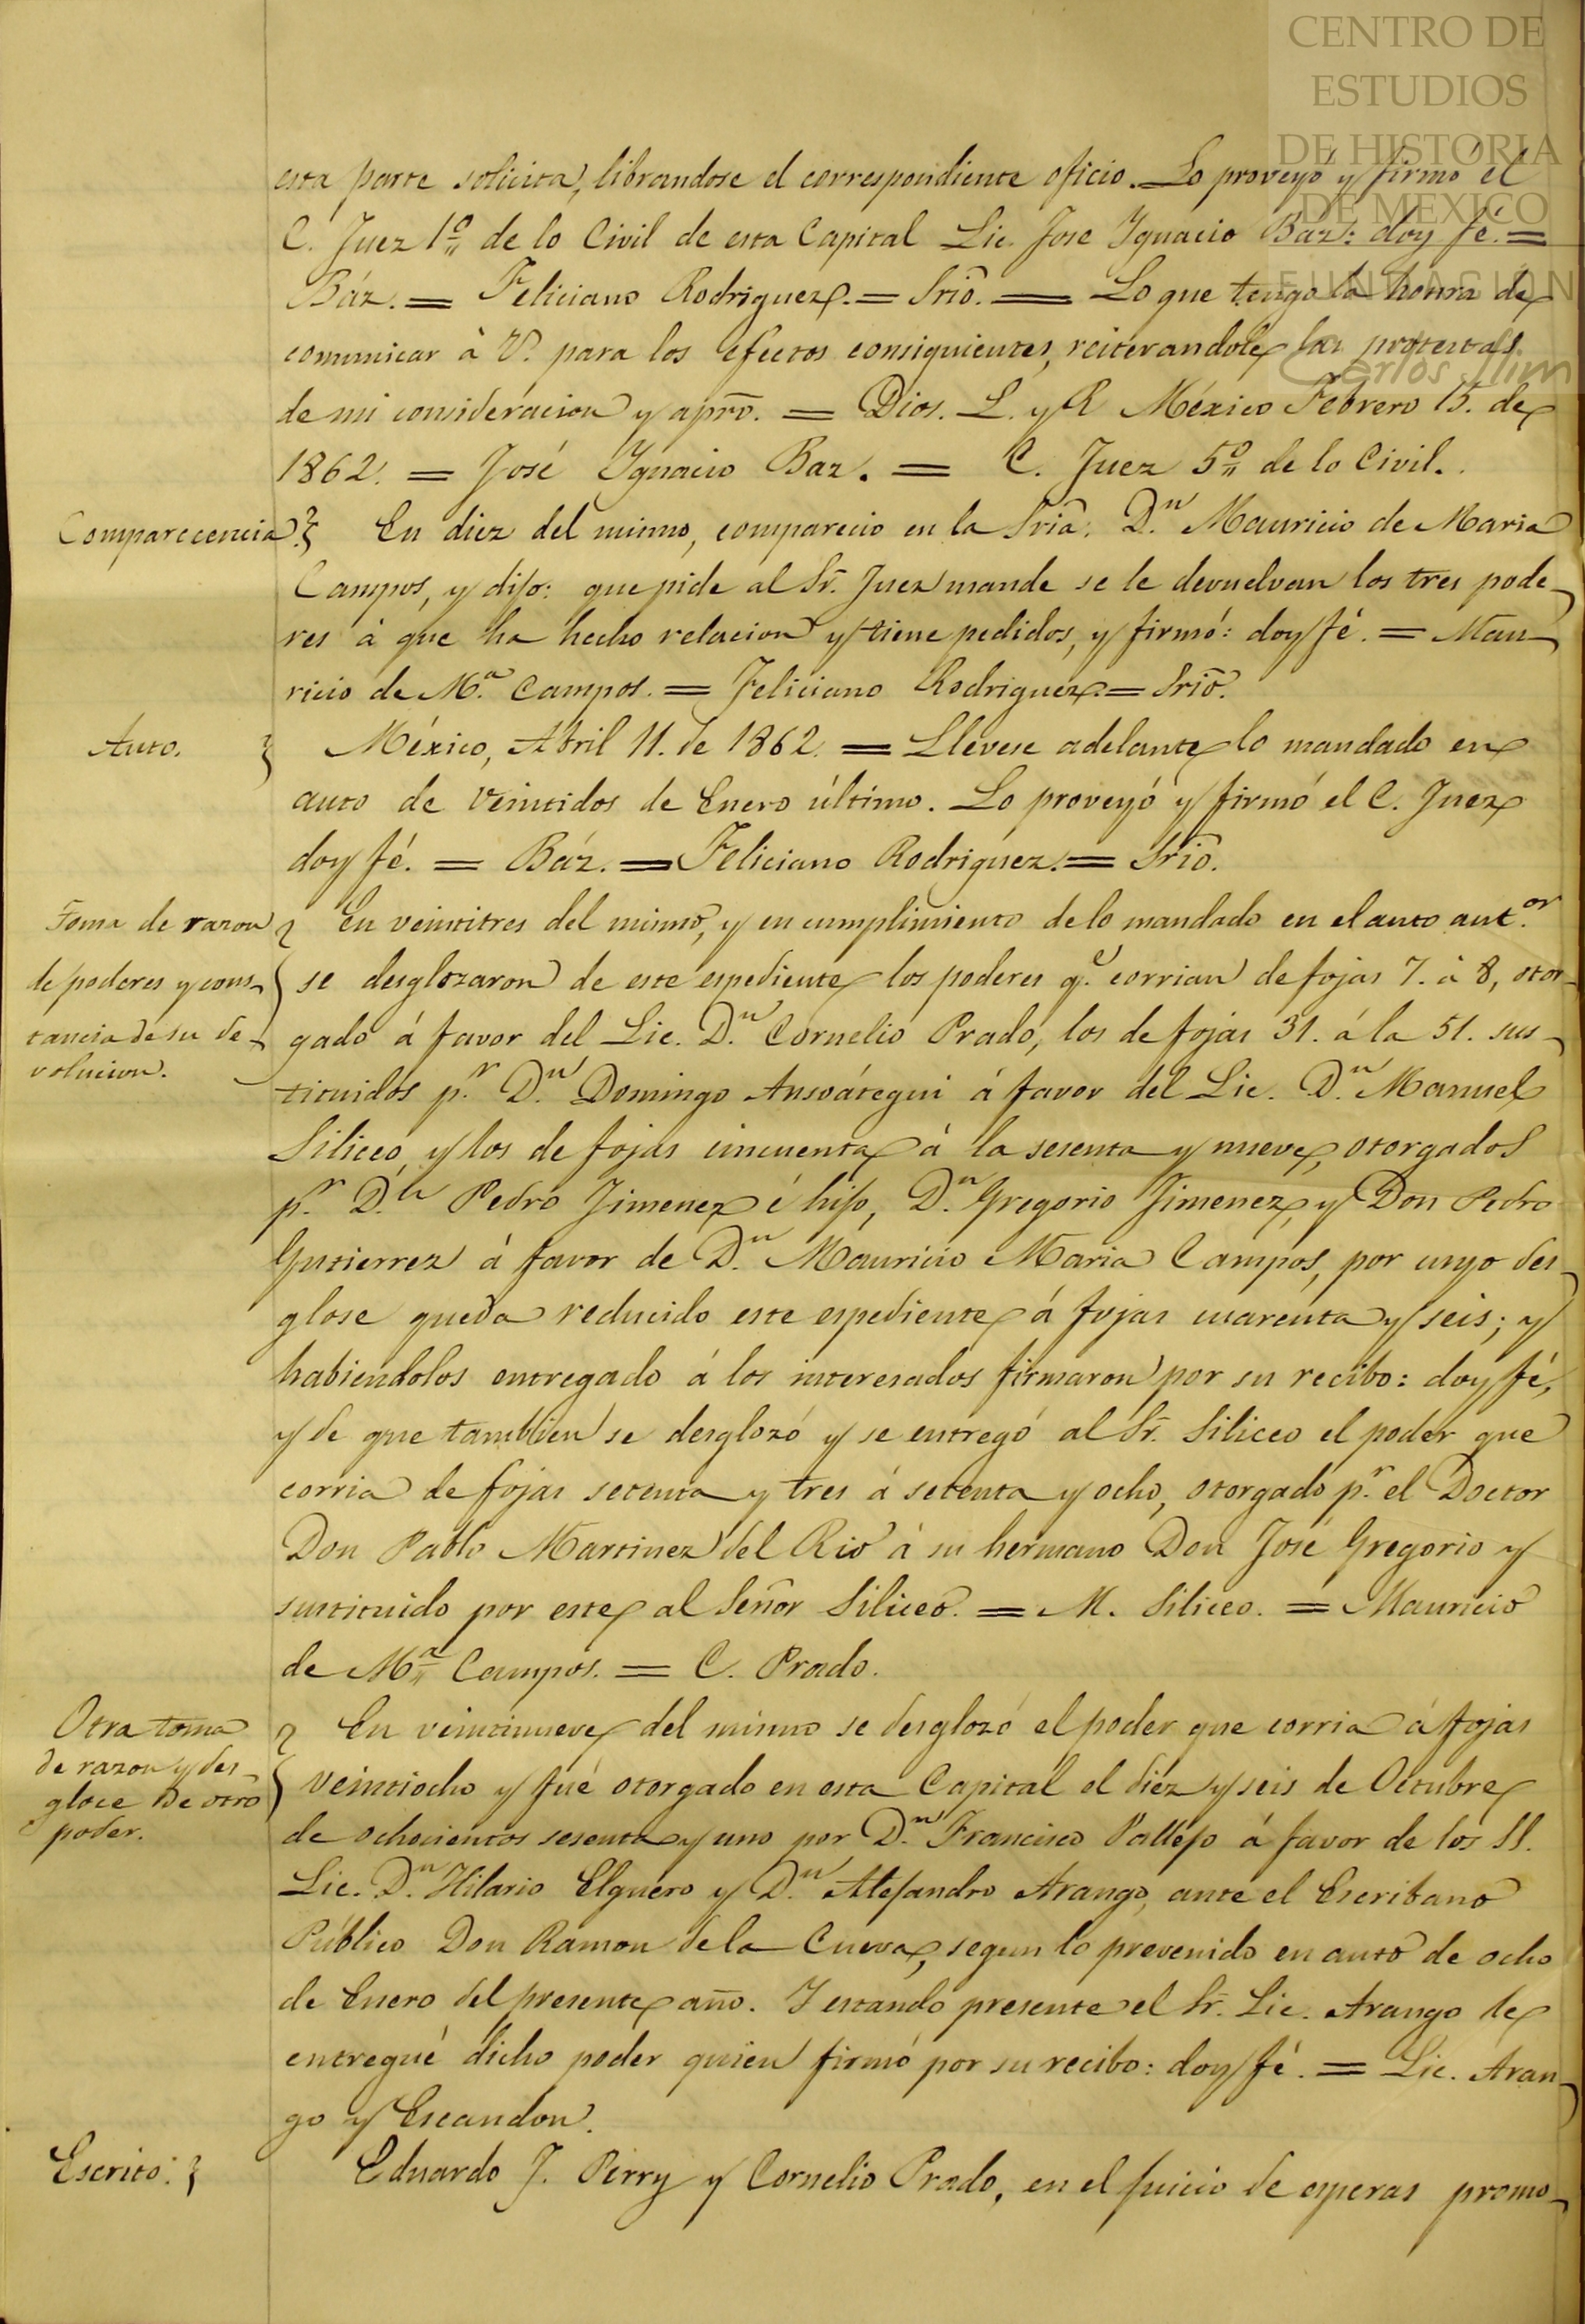 CENTRO DE
ESTUDIOS
DE HISTORIA
DE MEXICO
FUNDACION
Carlos Slim
esta parte solicita, librandose el correspondiente oficio. = Lo proveyó y firmó el
C. Juez 1º de lo Civil de esta Capital Lic. Jose Ygnacio Baz: doy fé. =
Báz. = Feliciano Rodriguez. = Srio. = Lo que tengo la honra de
comunicar à V. para los efectos consiguientes, reiterandole las protestas
de mi consideracion y apro. = Dios. L. y R México Febrero 15. de
1862. = José Ygnacio Baz. = C. Juez 5º de lo Civil.
Comparecencia. En diez del mismo, comparecio en la Sria. D.n Mauricio de Maria
Campos, y dijo: que pide al Sr. Juez mande se le devuelvan los tres pode-
res à que ha hecho relacion y tiene pedidos, y firmó: doy fé. = Mau-
ricio de M.a Campos. = Feliciano Rodriguez = Srio.
Auto. México, Abril 11. de 1862. = Llevese adelante lo mandado en
auto de veintidos de Enero último. Lo proveyó y firmó el C. Juez
doy fé. = Báz. = Feliciano Rodriguez. = Srio.
Toma de razon
de poderes y cons-
tancia de su de-
volucion.
En veintitres del mismo, y en cumplimiento de lo mandado en el auto ant.or
se desglozaron de este espediente los poderes q.e corrian de fojas 7. à 8, otor-
gado á favor del Lic. D.n Cornelio Prado, los de fojas 31. á la 51. sus-
tituidos p.r D.n Domingo Ansoátegui á favor del Lic. D.n Manuel
Siliceo, y los de fojas cincuenta à la sesenta y nueve, otorgados
p.r D.n Pedro Jimenez é hijo, D.n Gregorio Jimenez, y Don Pedro
Gutierrez à favor de D.n Mauricio Maria Campos, por cuyo des-
glose queda reducido este espediente á fojas cuarenta y seis; y
habiendolos entregado á los interesados firmaron por su recibo: doy fé,
y de que tambien se desglozó y se entregó al Sr. Siliceo el poder que
corria de fojas setenta y tres á setenta y ocho, otorgado p.r el Doctor
Don Pablo Martinez del Rio à su hermano Don José Gregorio y
sustituido por este al Señor Siliceo. = M. Siliceo. = Mauricio
de M.a Campos. = C. Prado.
Otra toma
de razon y des-
gloce de otro
poder.
En veintinueve del mismo se desglozó el poder que corria á fojas
veintiocho y fué otorgado en esta Capital el diez y seis de Octubre
de ochocientos sesenta y uno por D.n Francisco Vallejo á favor de los SS.
Lic. D.n Hilario Elguero y D.n Alejandro Arango, ante el Escribano
Público Don Ramon de la Cueva, segun lo prevenido en auto de ocho
de Enero del presente año. Y estando presente el Sr. Lic. Arango le
entregué dicho poder quien firmó por su recibo: doy fé. = Lic. Aran-
go y Escandon.
Escrito. Eduardo J. Perry y Cornelio Prado, en el juicio de esperas promo-